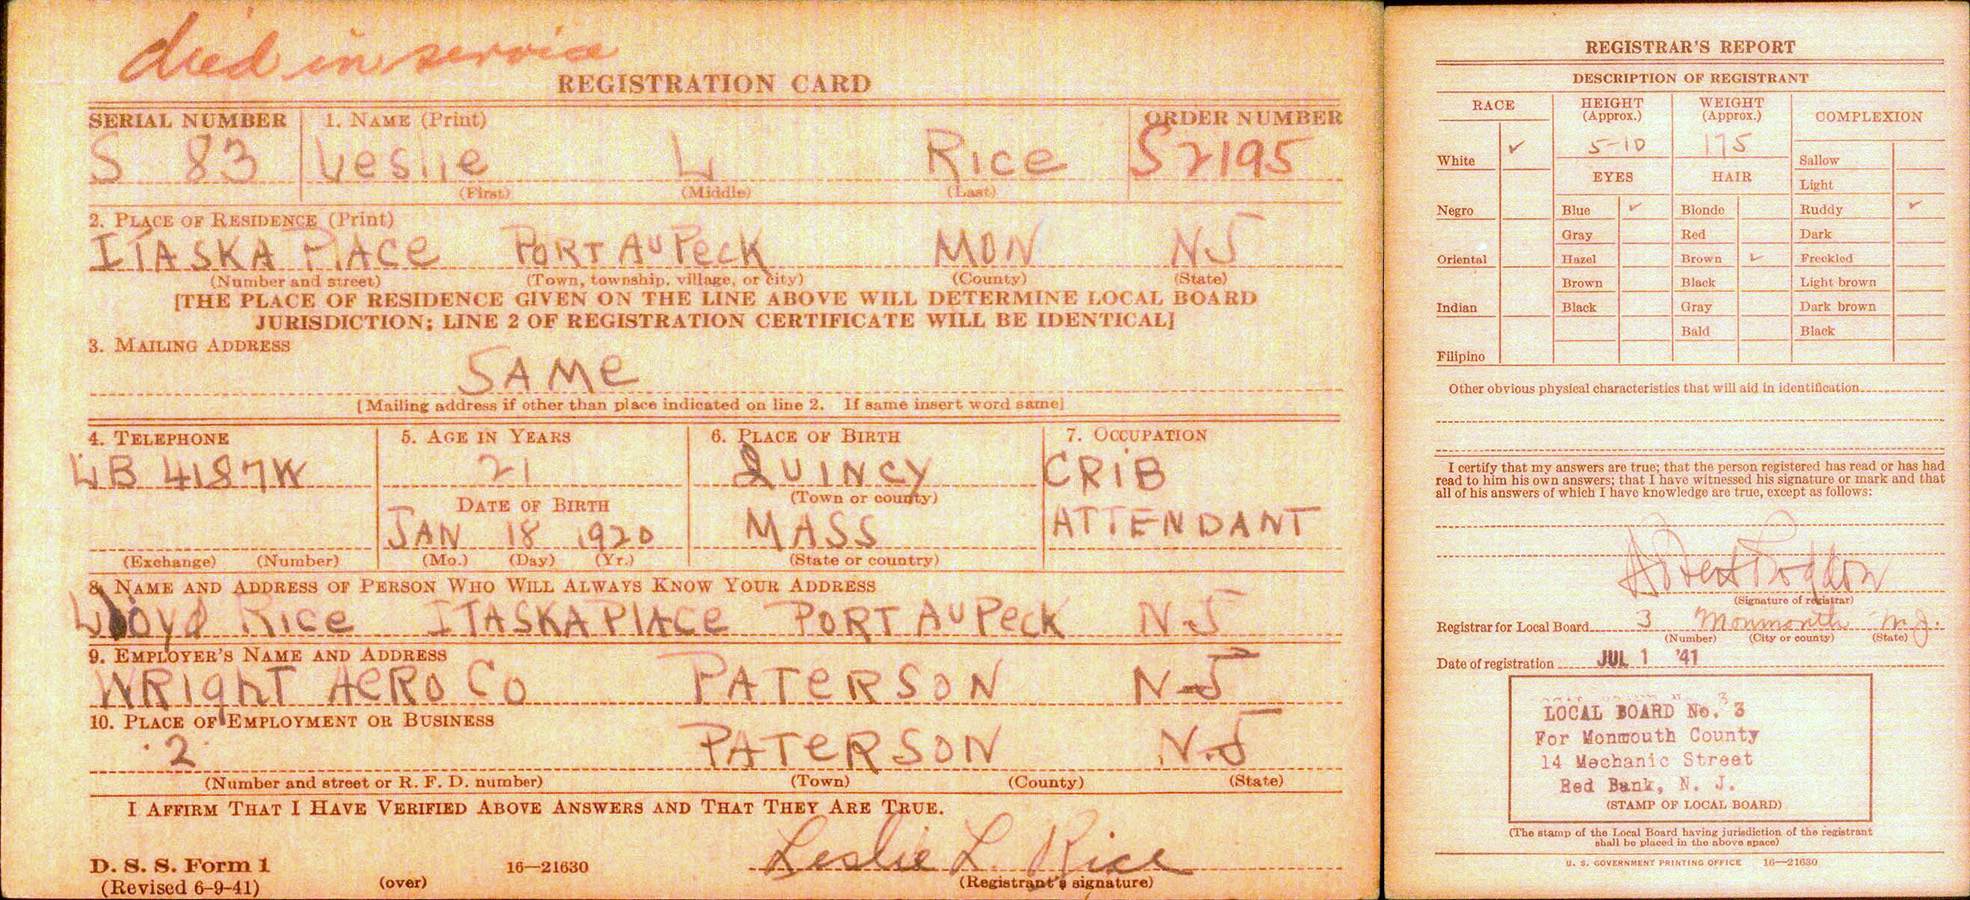 died in service
REGISTRATION CARD
SERIAL NUMBER 1. NAME (Print) ORDER NUMBER
S 83 Leslie L Rice S2195
(First) (Middle) (Last)
2. PLACE OF RESIDENCE (Print)
ITASKA PlACe PORT AU PecK MON NJ
(Number and street) (Town, township, village, or city) (County) (State)
[THE PLACE OF RESIDENCE GIVEN ON THE LINE ABOVE WILL DETERMINE LOCAL BOARD
JURISDICTION; LINE 2 OF REGISTRATION CERTIFICATE WILL BE IDENTICAL]
3. MAILING ADDRESS
SAMe
[Mailing address if other than place indicated on line 2. If same insert word same]
4. TELEPHONE 5. AGE IN YEARS 6. PLACE OF BIRTH 7. OCCUPATION
LB 4187W 21 QUINCY CRiB
(Town or county)
DATE OF BIRTH
JAN 18 1920 MASS ATTENDANT
(Exchange) (Number) (Mo.) (Day) (Yr.) (State or country)
8. NAME AND ADDRESS OF PERSON WHO WILL ALWAYS KNOW YOUR ADDRESS
Lloyd Rice ITASKA PlAce PORT AU PecK N-J
9. EMPLOYER'S NAME AND ADDRESS
WRighT AeRO CO PATeRSON N-J
10. PLACE OF EMPLOYMENT OR BUSINESS
2 PATeRSON N.J
(Number and street or R. F. D. number) (Town) (County) (State)
I AFFIRM THAT I HAVE VERIFIED ABOVE ANSWERS AND THAT THEY ARE TRUE.
Leslie L. Rice
D. S. S. Form 1 16—21630
(Revised 6-9-41) (over) (Registrant's signature)
REGISTRAR'S REPORT
DESCRIPTION OF REGISTRANT
RACE HEIGHT (Approx.) WEIGHT (Approx.) COMPLEXION
White ✓ 5-10 175 Sallow
EYES HAIR Light
Negro Blue ✓ Blonde Ruddy ✓
Gray Red Dark
Oriental Hazel Brown ✓ Freckled
Brown Black Light brown
Indian Black Gray Dark brown
Bald Black
Filipino
Other obvious physical characteristics that will aid in identification
I certify that my answers are true; that the person registered has read or has had
read to him his own answers; that I have witnessed his signature or mark and that
all of his answers of which I have knowledge are true, except as follows:
(Signature of registrar)
Registrar for Local Board 3 Monmouth N.J.
(Number) (City or county) (State)
Date of registration JUL 1 '41
LOCAL BOARD No. 3
For Monmouth County
14 Mechanic Street
Red Bank, N. J.
(STAMP OF LOCAL BOARD)
(The stamp of the Local Board having jurisdiction of the registrant
shall be placed in the above space)
U. S. GOVERNMENT PRINTING OFFICE 16—21630